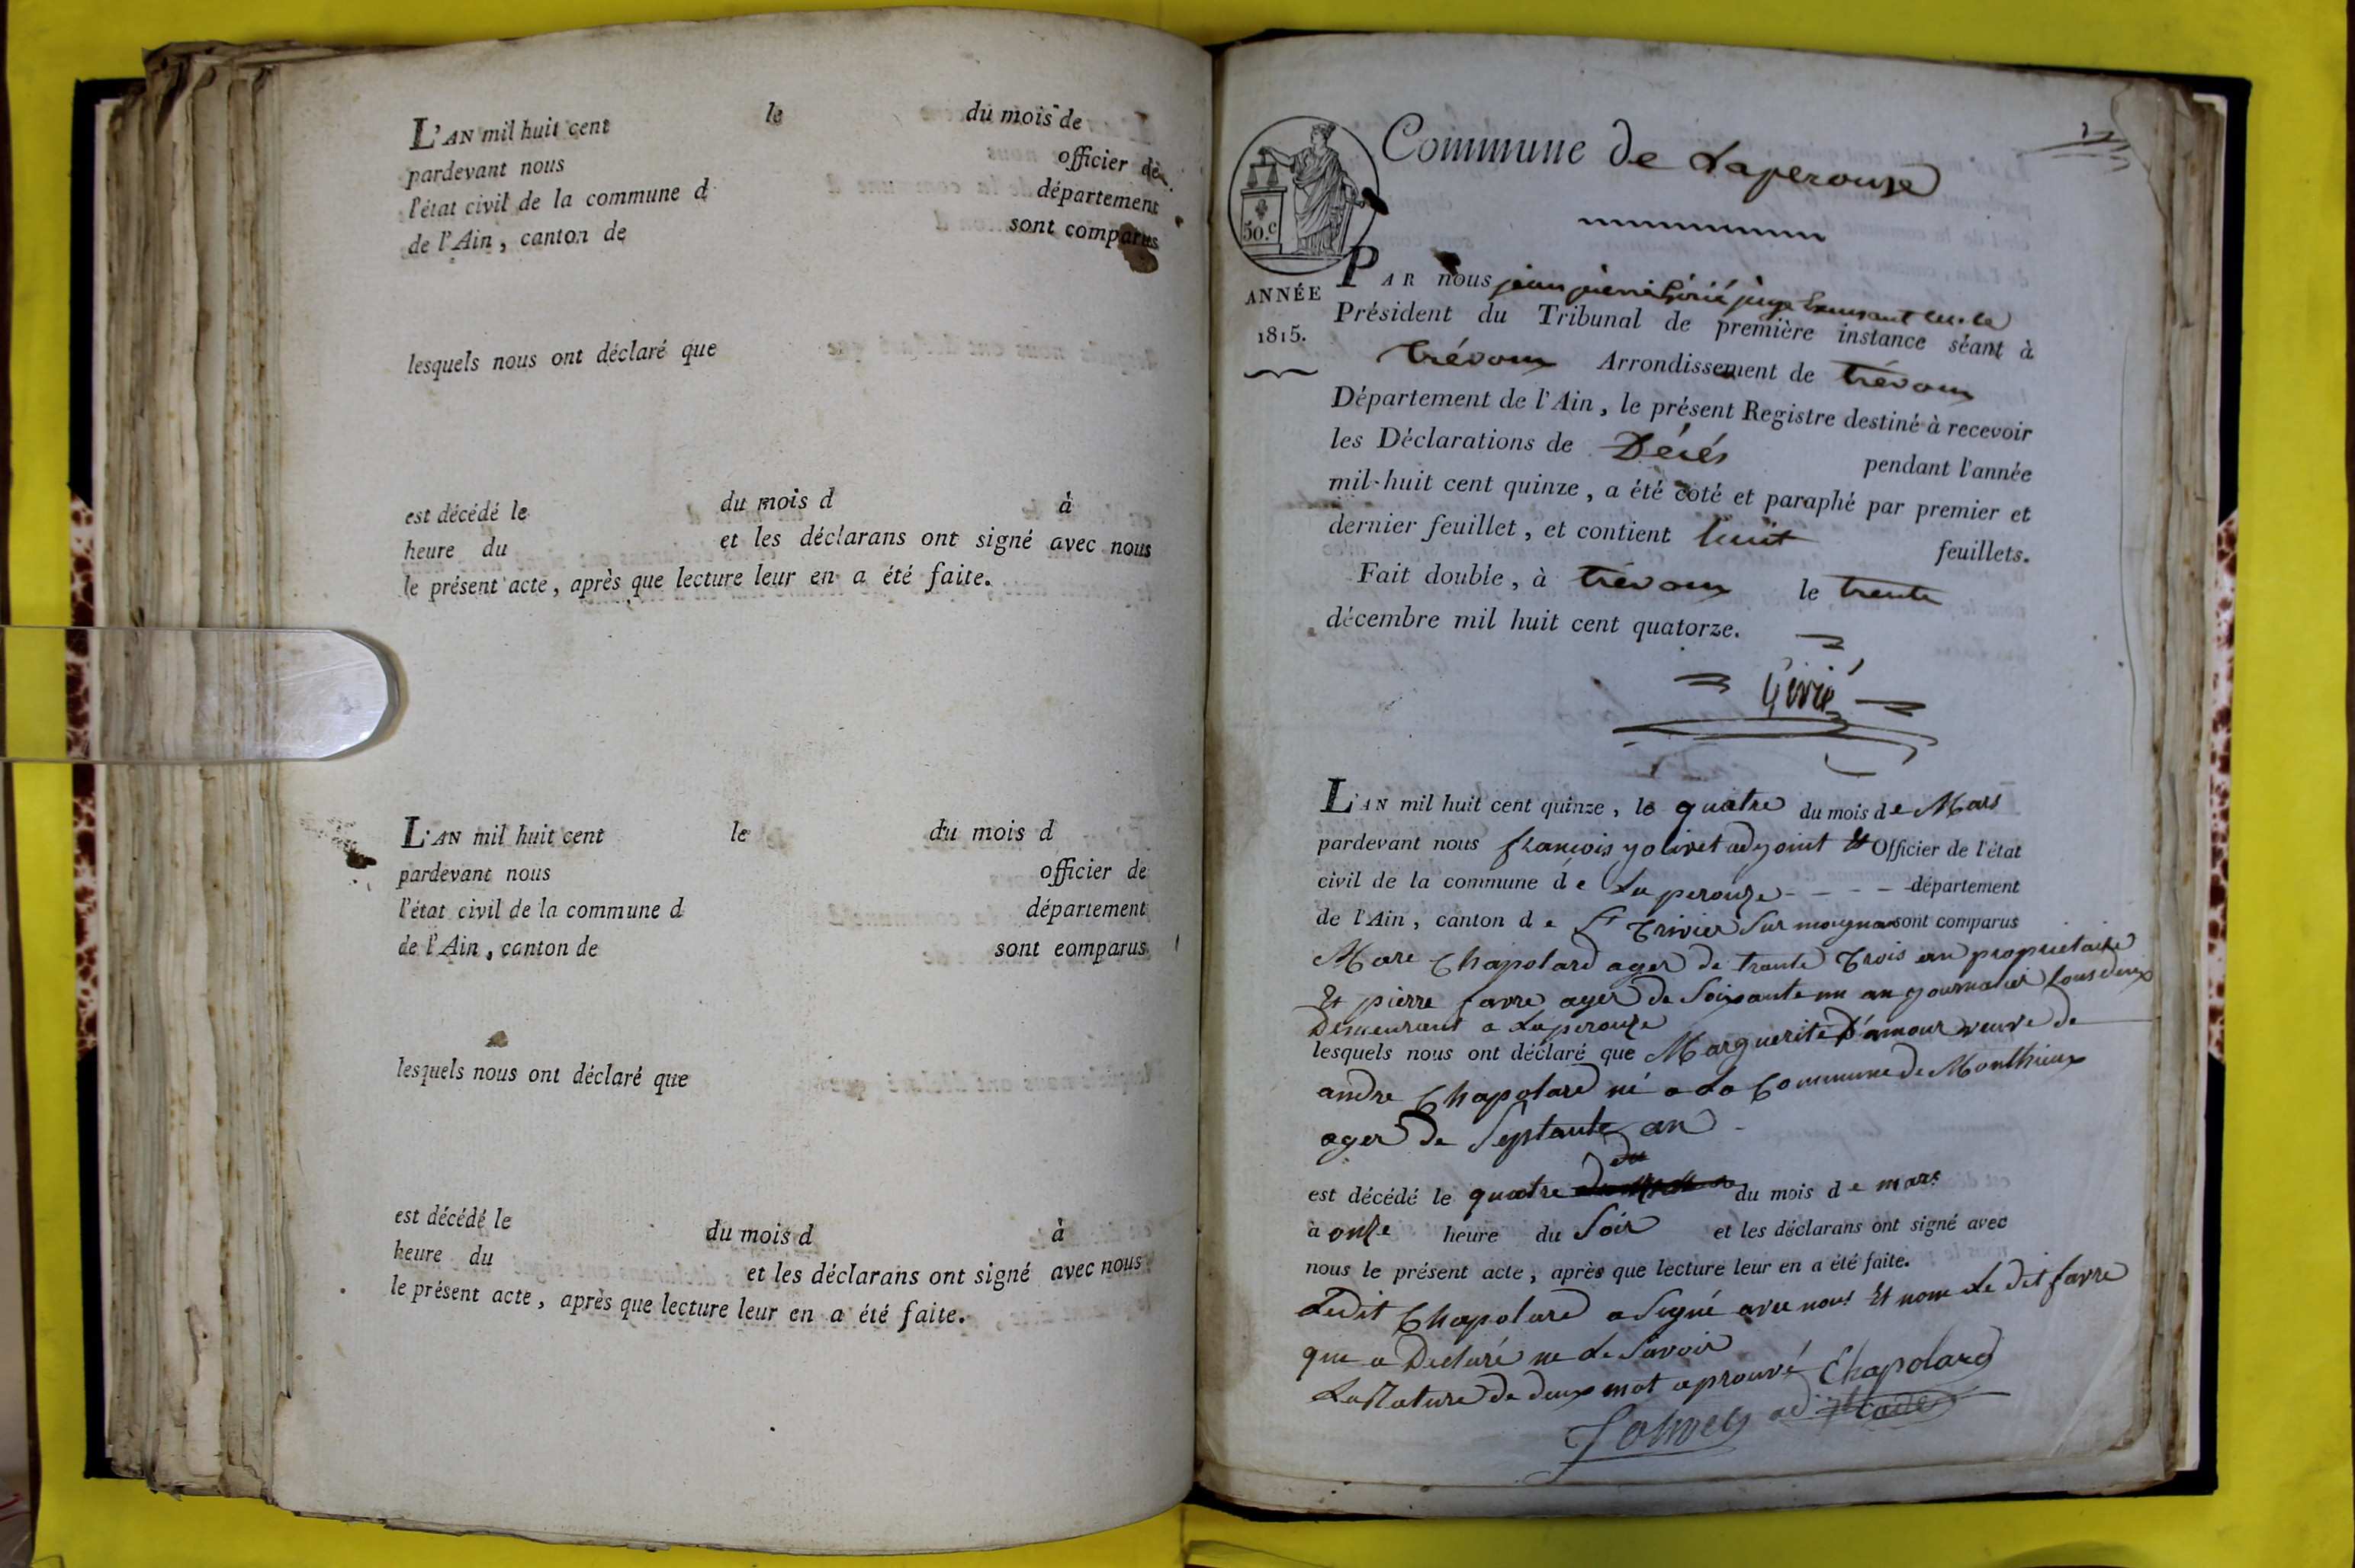 L'AN mil huit cent le du mois de
pardevant nous officier de
l'état civil de la commune d département
de l'Ain, canton de sont comparus
lesquels nous ont déclaré que
est décédé le du mois d à
heure du et les déclarans ont signé avec nous
le présent acte, après que lecture leur en a été faite.
L'AN mil huit cent le du mois d
pardevant nous officier de
l'état civil de la commune d département
de l'Ain, canton de sont comparus
lesquels nous ont déclaré que
est décédé le du mois d à
heure du et les déclarans ont signé avec nous
le présent acte, après que lecture leur en a été faite.
Commune de Laperouse
50.c
ANNÉE
1815.
PAR nous jean pierre juge
Président du Tribunal de première instance séant à
trévoux Arrondissement de trévoux
Département de l'Ain, le présent Registre destiné à recevoir
les Déclarations de Décés pendant l'année
mil-huit cent quinze, a été coté et paraphé par premier et
dernier feuillet, et contient huit feuillets.
Fait double, à trévoux le trente
décembre mil huit cent quatorze.
L'AN mil huit cent quinze, le quatre du mois de Mars
pardevant nous françois yolivet adyoint Et Officier de l'état
civil de la commune de La perouze - - - - département
de l'Ain, canton de St Trivier Sur moignan sont comparus
Marc Chapolard ager de trante Trois an proprietaire
Et pierre favre ager de Soixante un an yournalier tous deux
Demeurant a Laperouze
lesquels nous ont déclaré que Marguerite D'amour veuve de
andre Chapolard né a La Commune de Monthieux
ager de Septante an
est décédé le quatre du du mois de mars
à onze heure du Soir et les déclarans ont signé avec
nous le présent acte, après que lecture leur en a été faite.
Ledit Chapolard a Signé avec nous Et nom Le dit favre
que a Declaré ne Le Savoir
La Rature de deux mot aprouvé Chapolard
Jolivet ad